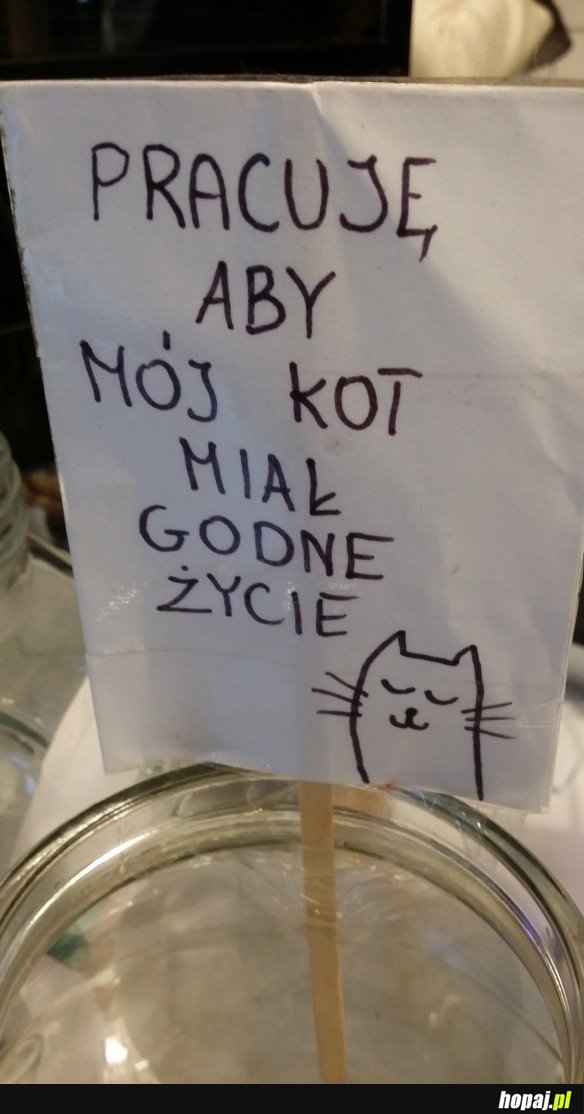 PRACUJĘ
ABY
MÓJ KOT
MIAŁ
GODNE
ŻYCIE
hopaj.pl